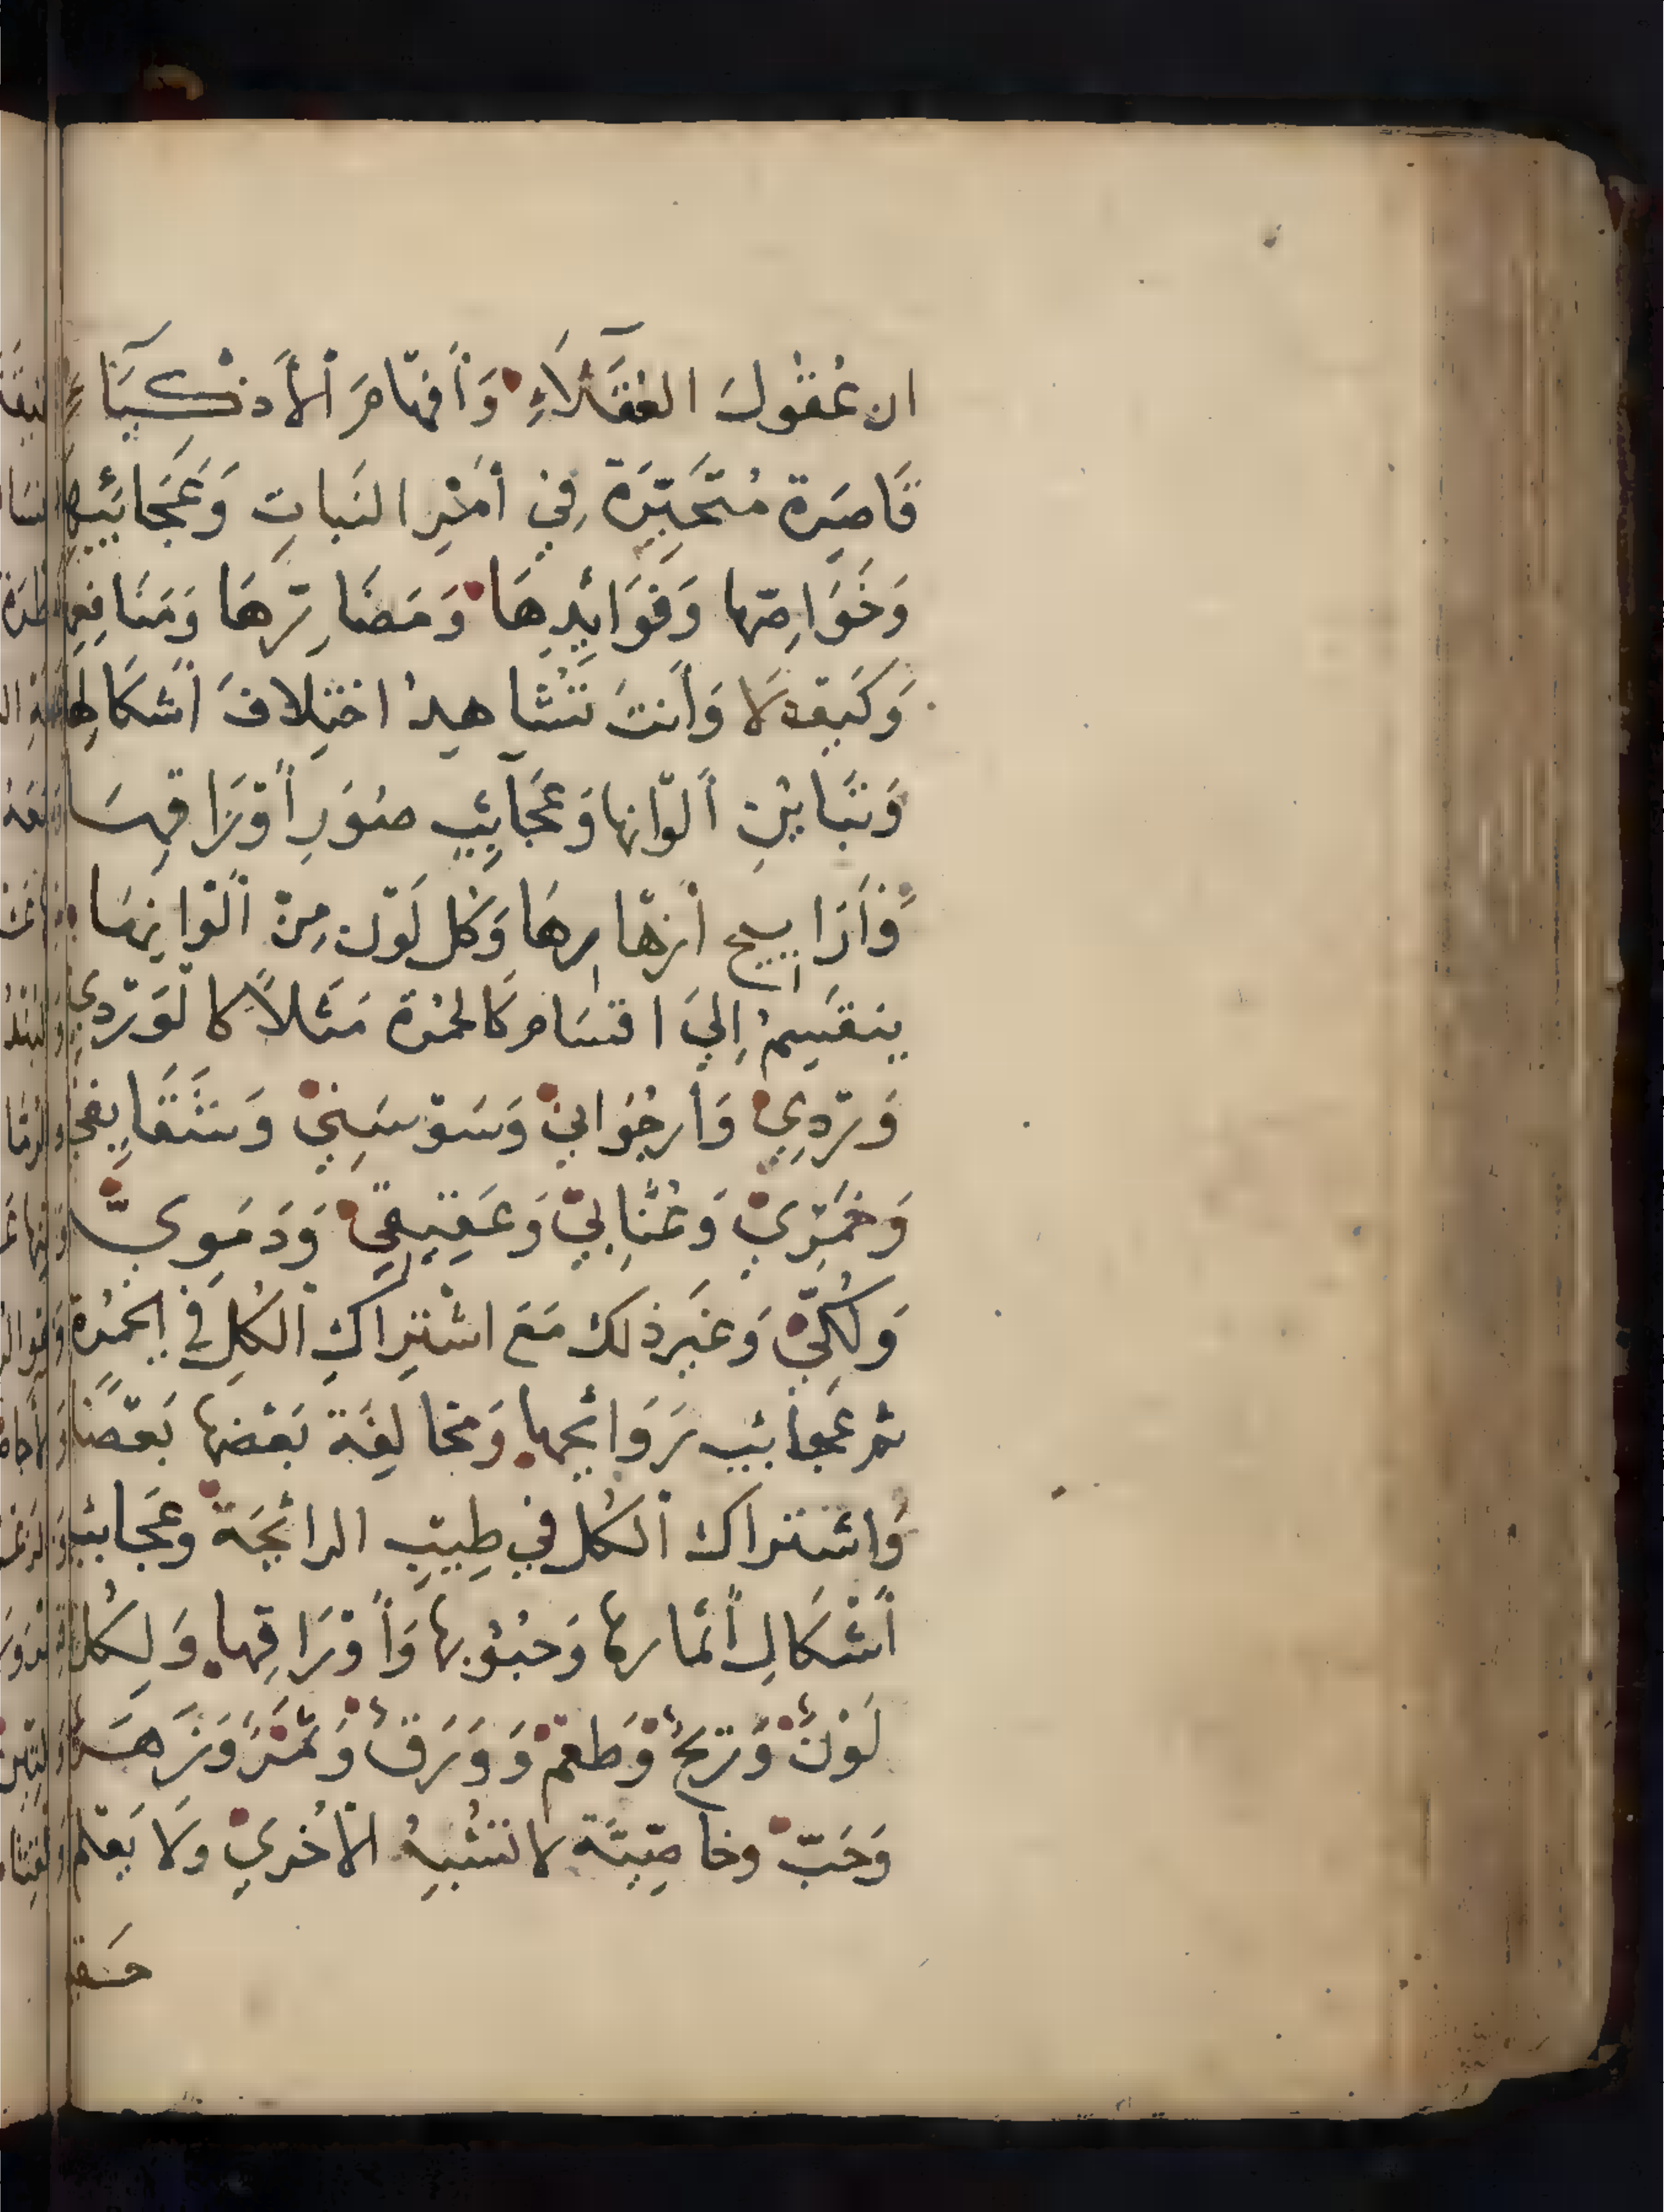 ان عُقُولَ العُقَلَاءِ وَأَفْهَامَ الأَذْكِيَاءِ
قَاصِرَة مُتَحَيِّرَة فِي أَمْرِ النَبَاتِ وَعَجَائِبِهَا
وَخَوَاصِّهَا وَفَوَائِدِهَا وَمَضَارِّهَا وَمَنَافِعِهَا
وَكَيْفَ لَا وَأَنتَ تُشَاهِدُ اختِلَافَ أَشكَالِهَا
وَتَبَايُنِ أَلوَانِهَا وَعَجَائِبِ صُوَرِ أَوْرَاقِهَا
وَأَرَايِيح أَزهَارِهَا وَكُل لَوْن مِنْ أَلْوَانِهَا
يَنقَسِمُ إِلَى اقسَام كَالحُمْرَة مَثَلاً كالوَرْدِي
وَرْدِيٌّ وَأرجُوَانيٌّ وَسَوْسَنِيٌّ وَشَقَايِقيٌّ
وَخَمْرِيٌّ وَعُنَّابِيٌّ وَعَقِيقِيٌّ وَدَمَوِيٌّ
وَلُكِّيٌّ وَغَير ذلك مَعَ اشْتِرَاكِ الكُلِ فِي الحُمْرَة
ثم عَجَائِب رَوَائِحِهَا وَمخَالِفَة بَعْضهَا بَعْضًا
وَاشتراك الكُل فِي طِيبِ الرائحَة وعَجَائب
أَشْكَالِ أَثمَارِهَا وَحبُوبِهَا وَأَوْرَاقِهَا وَلِكُلِّ
لَوْنٌ وَرِيحٌ وَطَعْمٌ وَوَرَقٌ وَثَمَرٌ وَزَهَرٌ
وَحَبٌّ وخاصِّيَّة لا تشْبِهُ الأُخْرَي وَلَا يَعْلَم
حقي